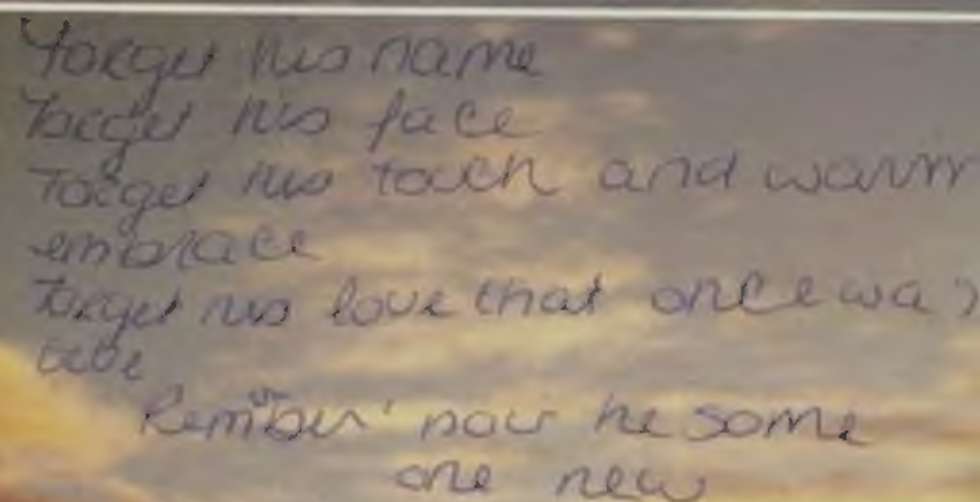 Forget his name
Forget his face
Forget his touch and warm
embrace
Forget his love that once was
true
Rember now he some
one new